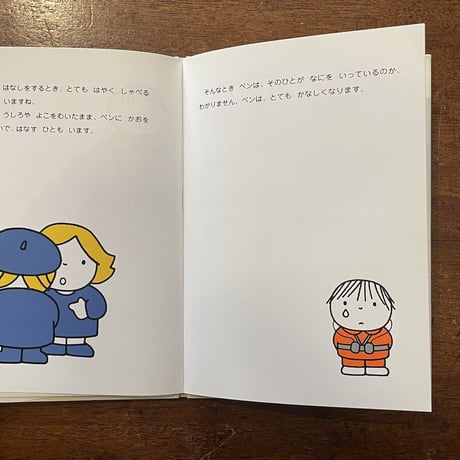 はなしをするとき、とても はやく しゃべる
いますね。
うしろや よこをむいたまま、ベンに かおを
いで、はなす ひとも います。
そんなとき ベンは、そのひとが なにを いっているのか、
わかりません。ベンは、とても かなしくなります。